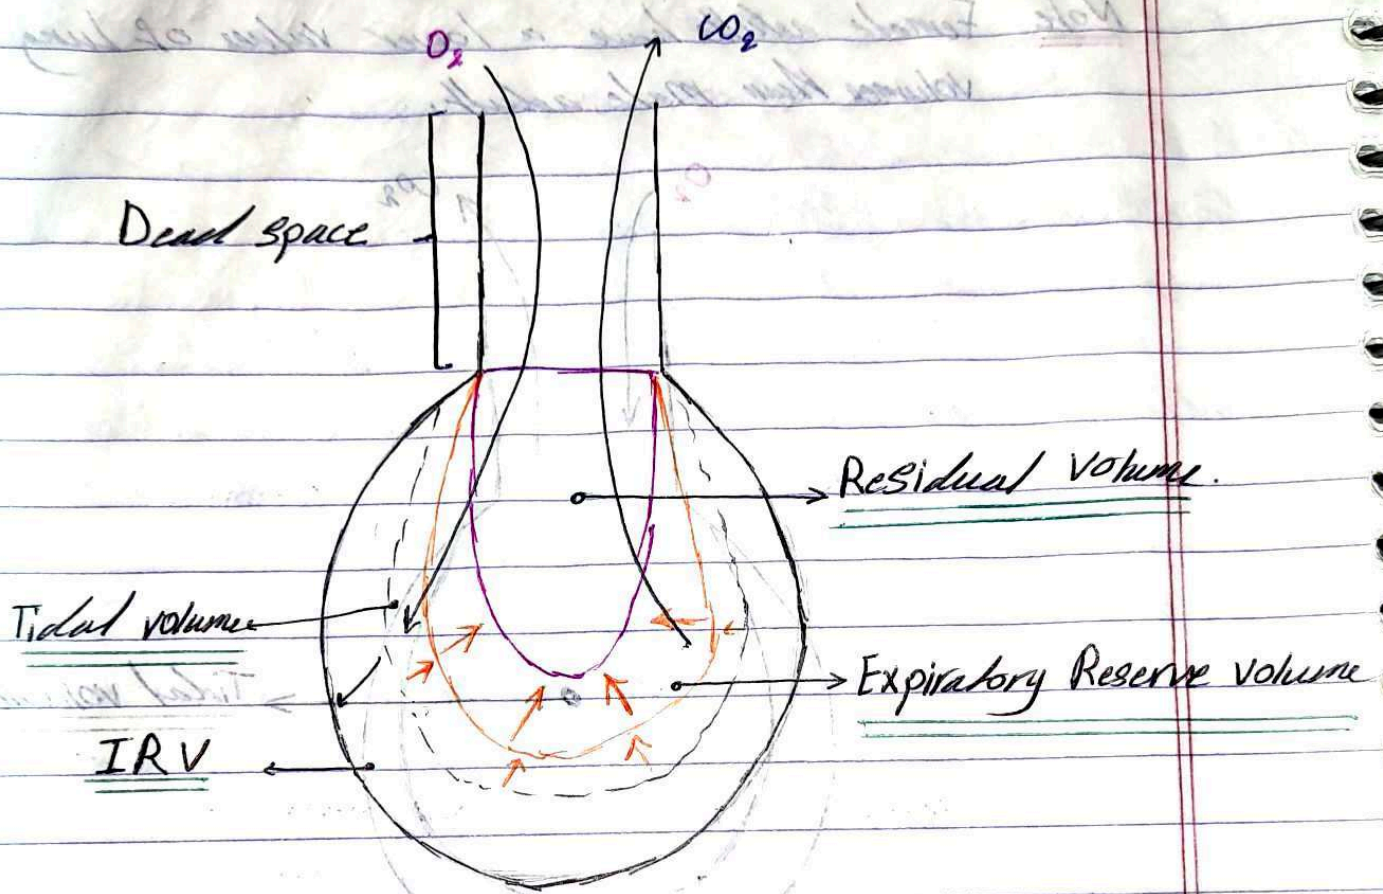 O₂ CO₂
Dead space
Residual Volume.
Tidal volume
Expiratory Reserve volume
IRV